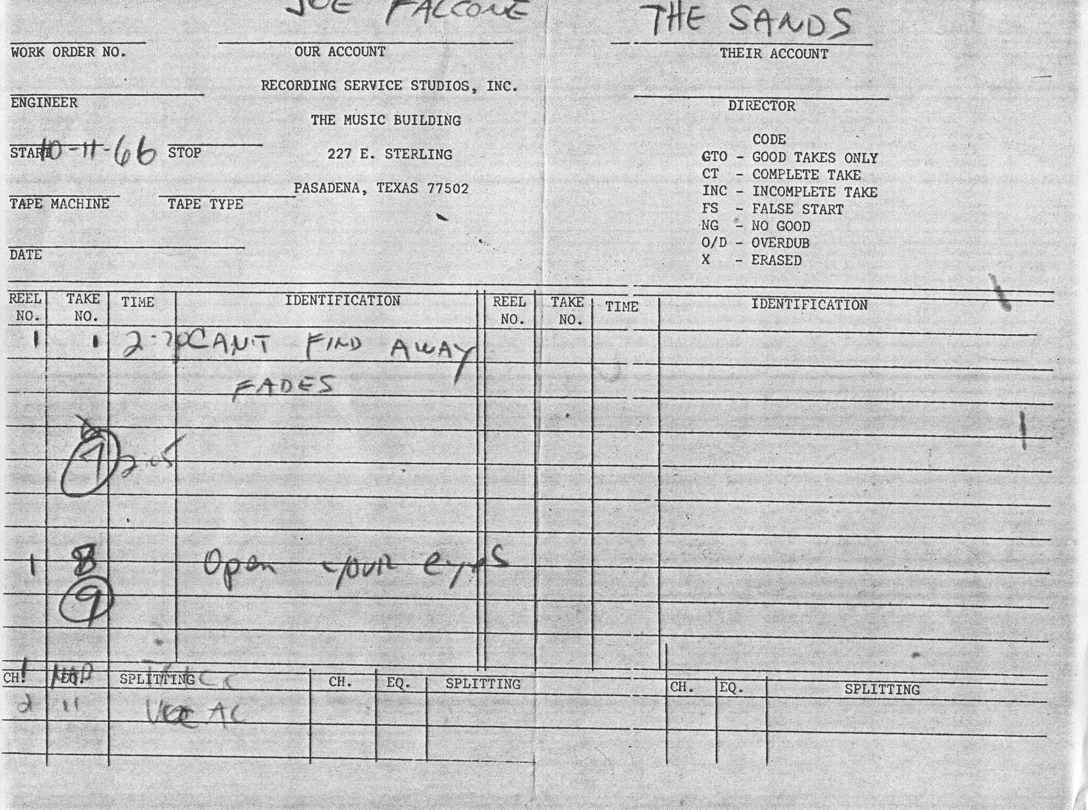 JOE FALCONE THE SANDS
WORK ORDER NO. OUR ACCOUNT THEIR ACCOUNT
RECORDING SERVICE STUDIOS, INC.
ENGINEER DIRECTOR
THE MUSIC BUILDING
CODE
START 10-11-66 STOP 227 E. STERLING GTO - GOOD TAKES ONLY
CT - COMPLETE TAKE
PASADENA, TEXAS 77502 INC - INCOMPLETE TAKE
TAPE MACHINE TAPE TYPE FS - FALSE START
NG - NO GOOD
O/D - OVERDUB
DATE X - ERASED
REEL NO. TAKE NO. TIME IDENTIFICATION REEL NO. TAKE NO. TIME IDENTIFICATION
1 1 CANT FIND AWAY
FADES
2:05
1 8 Open your eyes
9
CH. SPLITTING CH. EQ. SPLITTING CH. EQ. SPLITTING
1
2 "